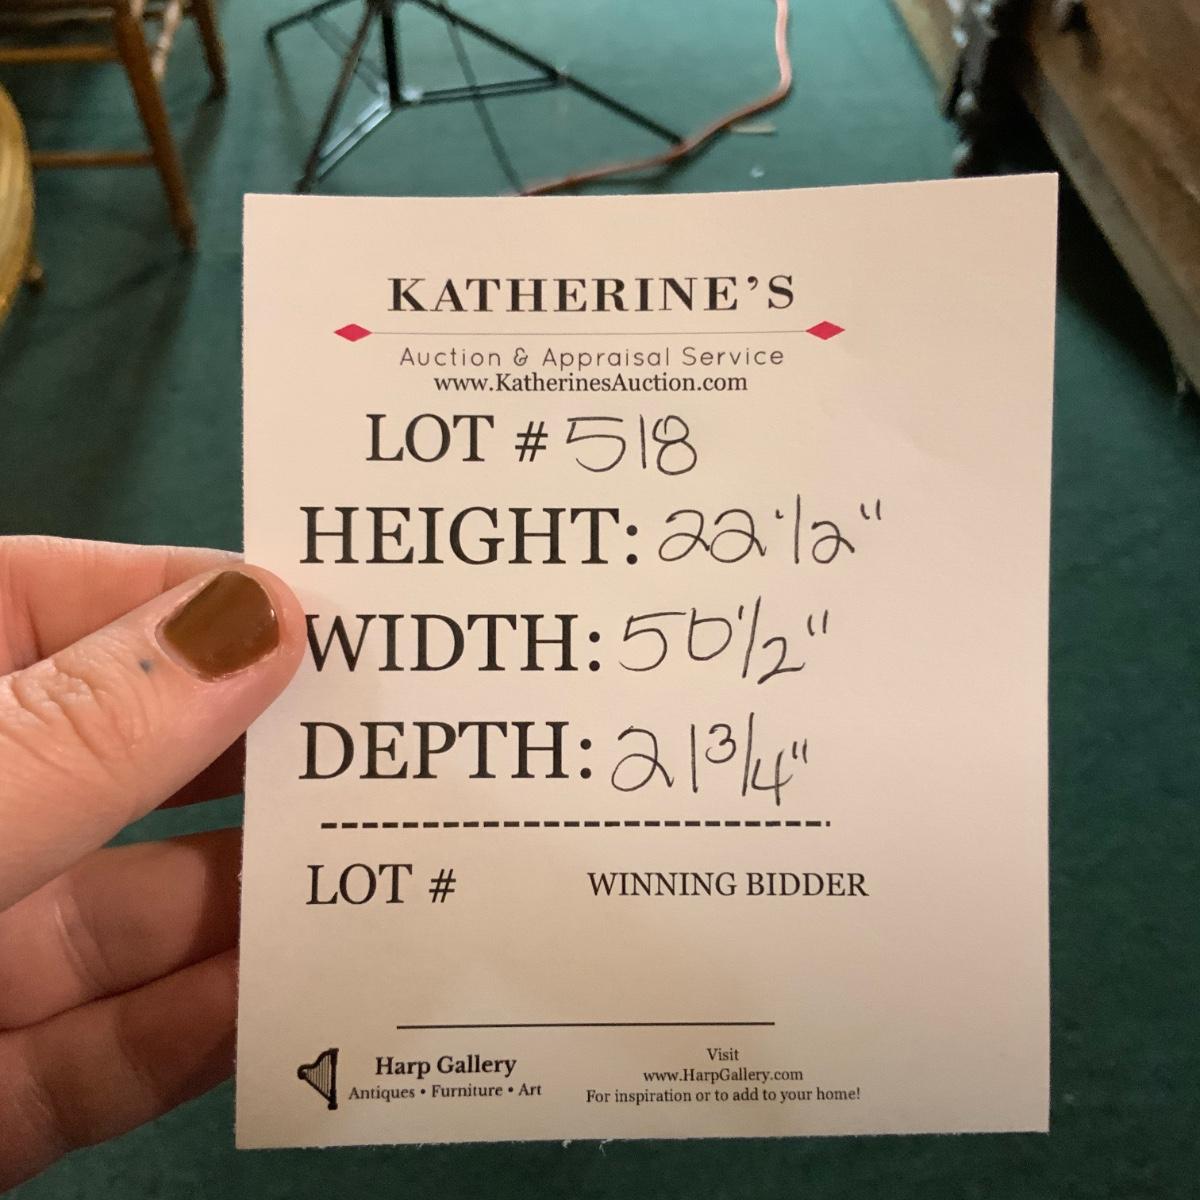 KATHERINE'S
Auction & Appraisal Service
www.KatherinesAuction.com
LOT # 518
HEIGHT: 22 1/2"
WIDTH: 50 1/2"
DEPTH: 21 3/4"
LOT # WINNING BIDDER
Harp Gallery
Antiques • Furniture • Art
Visit
www.HarpGallery.com
For inspiration or to add to your home!